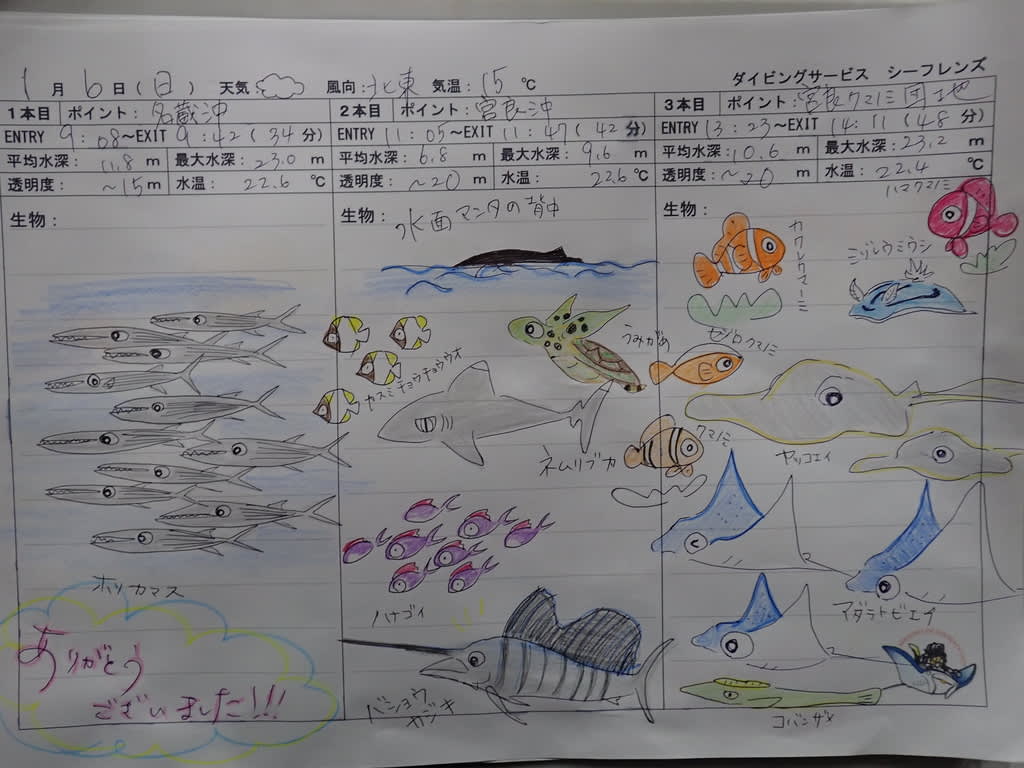 1月6日(日) 天気 風向:北東 気温:15℃
ダイビングサービス シーフレンズ
1本目 ポイント:名蔵沖
ENTRY 9:08~EXIT 9:42(34分)
平均水深:11.8m 最大水深:23.0m
透明度:~15m 水温:22.6℃
生物:
ホソカマス
ありがとう
ございました!!!
2本目 ポイント:宮良沖
ENTRY 11:05~EXIT 11:47(42分)
平均水深:6.8m 最大水深:9.6m
透明度:~20m 水温:22.6℃
生物:水面マンタの背中
カスミチョウチョウウオ
うみがめ
ネムリブカ
ハナゴイ
バショウ
カジキ
3本目 ポイント:宮良クマノミ団地
ENTRY 13:23~EXIT 14:11(48分)
平均水深:10.6m 最大水深:23.2m
透明度:~20m 水温:22.4℃
生物:
ハマクマノミ
カクレクマノミ
ミゾレウミウシ
セジロクマノミ
クマノミ
ヤッコエイ
マダラトビエイ
コバンザメ